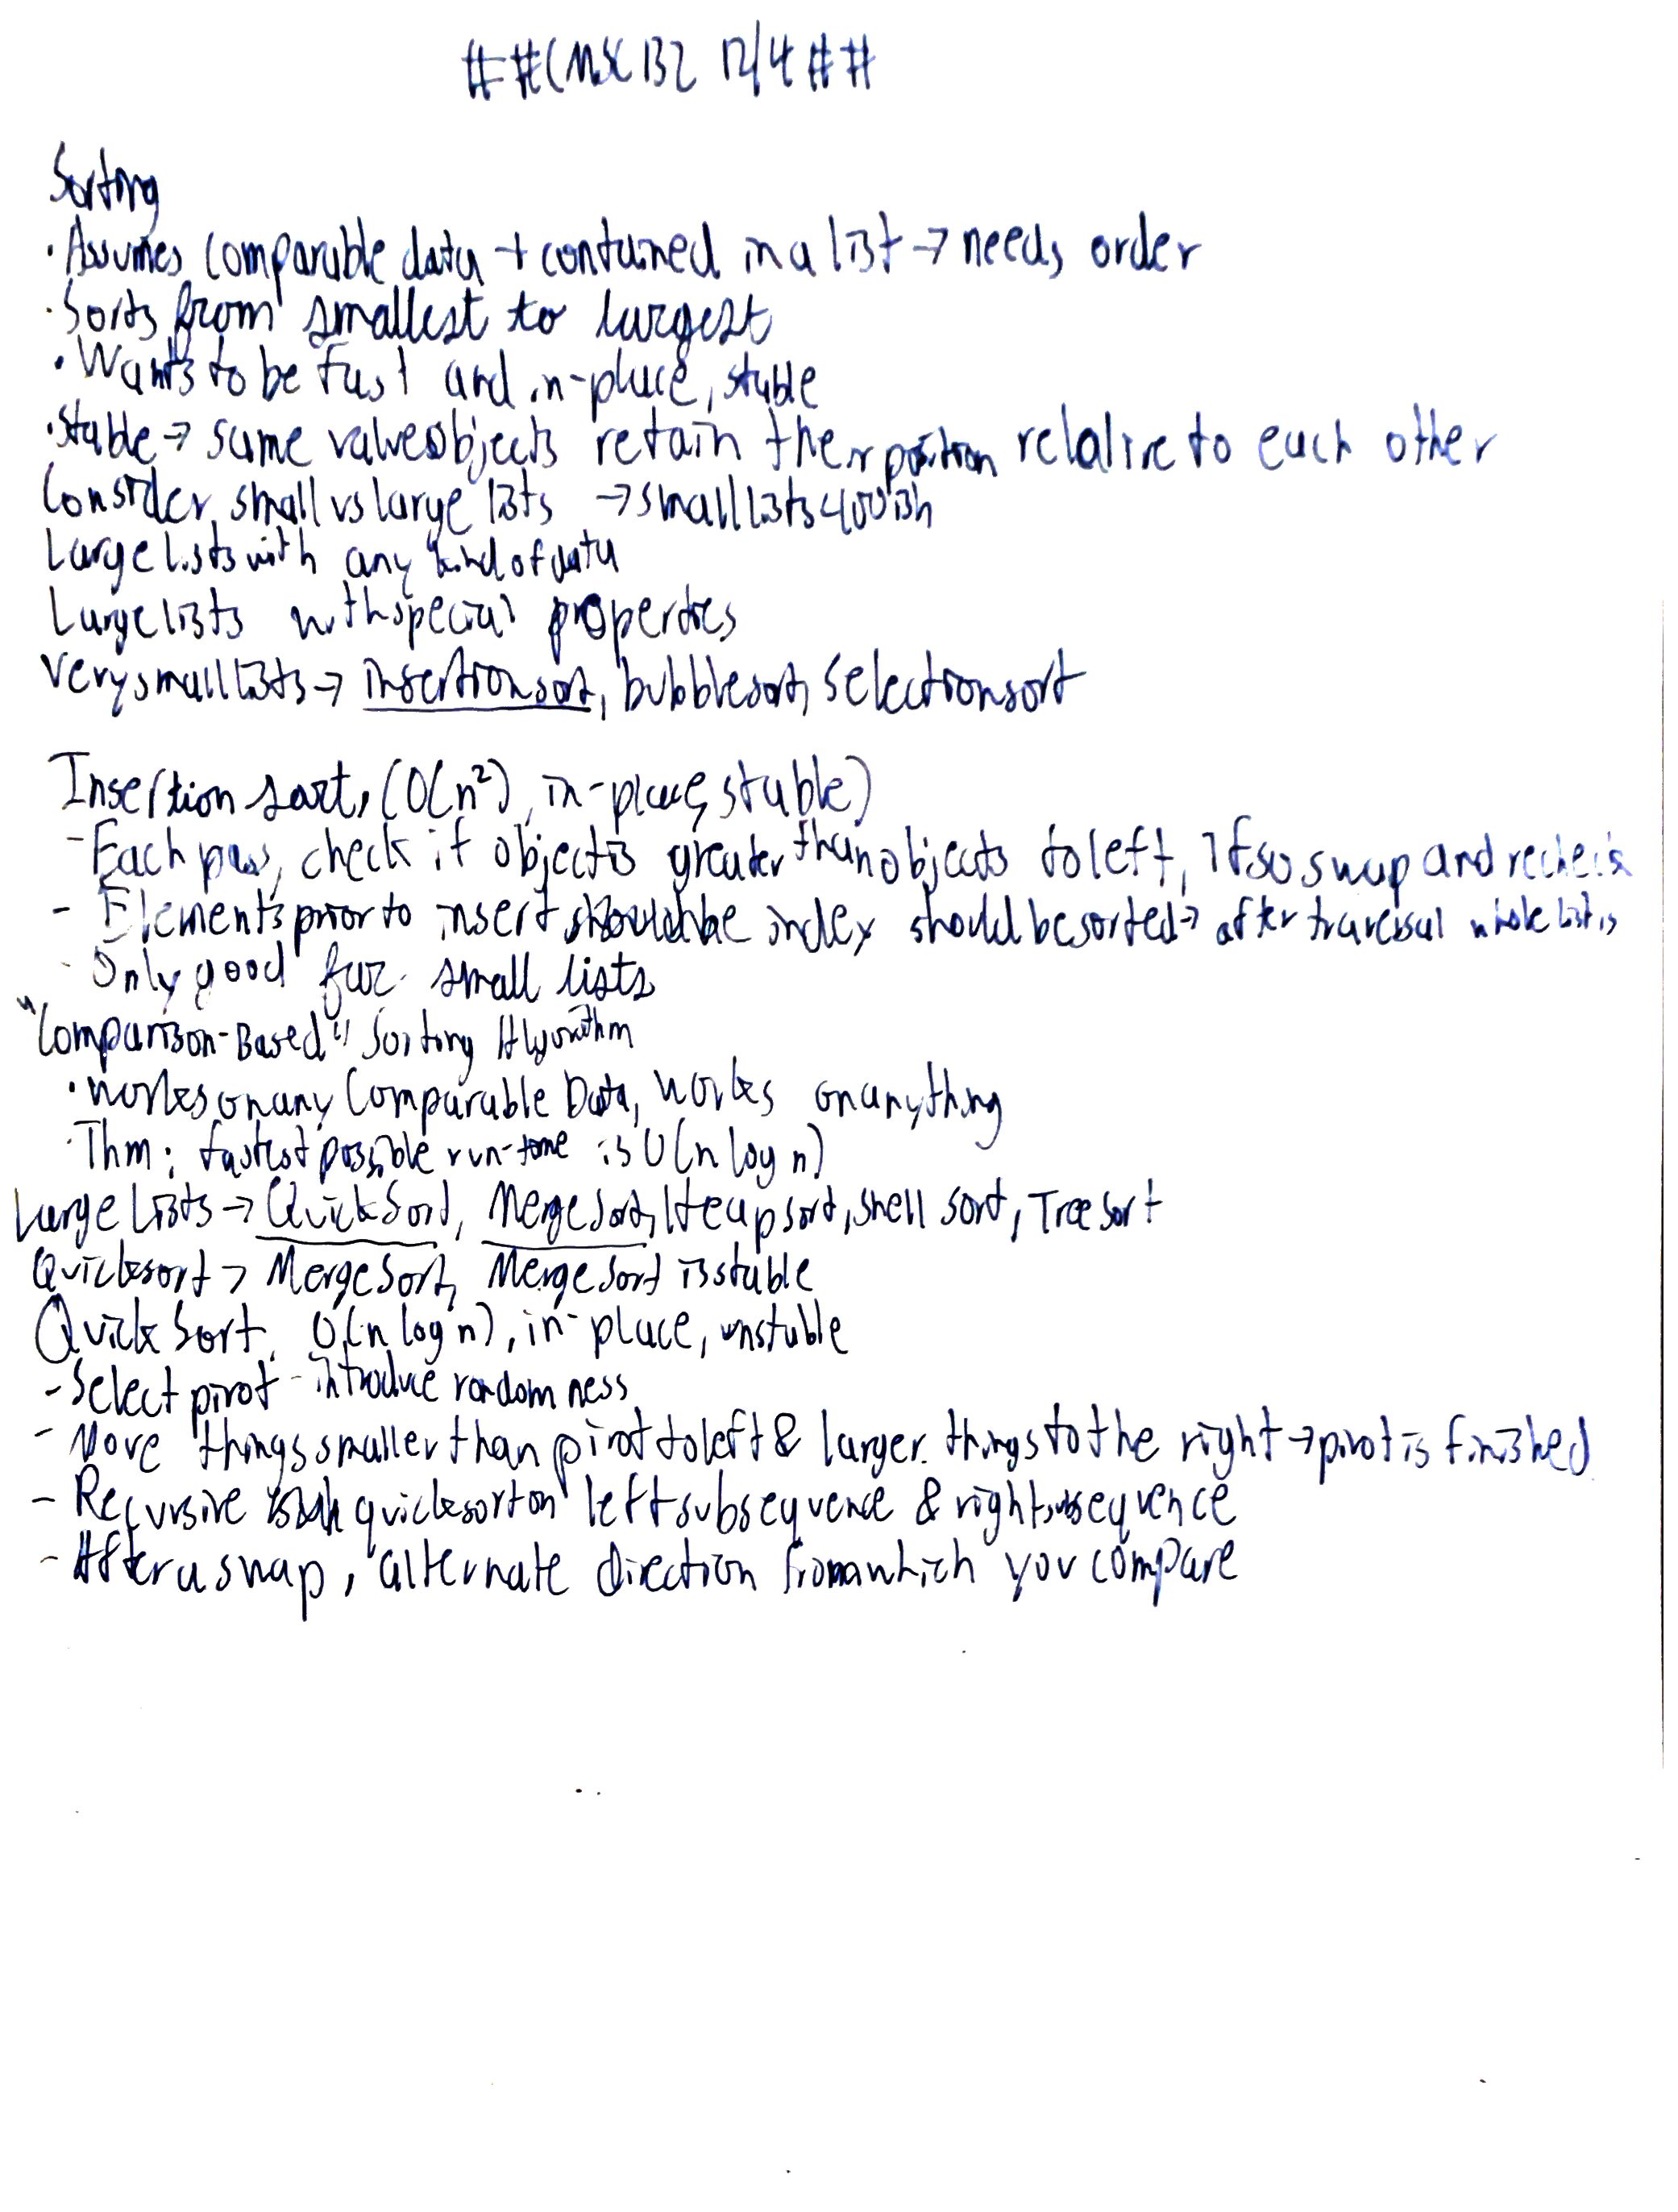 ##CMSC 132 12/4##
Sorting
· Assumes comparable data + contained in a list → needs order
· Sorts from smallest to largest
· Wants to be fast and in-place, stable
· Stable → same value objects retain their position relative to each other
Consider small vs large lists → small lists <100ish
Large lists with any kind of data
Large lists with special properties
Very small lists → insertion sort, bubble sort, selection sort
Insertion sort, (O(n²), in-place, stable)
- Each pass, check if object is greater than objects to left, If so swap and recheck
- Elements prior to insert index should be sorted → after traversal whole list is
- Only good for small lists
"Comparison-Based" Sorting Algorithm
· Works on any Comparable Data, works on anything
· Thm: fastest possible run-time is O(n log n)
Large Lists → QuickSort, MergeSort, Heapsort, shell sort, Tree sort
Quicksort > MergeSort, MergeSort is stable
QuickSort, O(n log n), in-place, unstable
- Select pivot - introduce randomness
- Move things smaller than pivot to left & larger things to the right → pivot is finished
- Recursive quicksort on left subsequence & right subsequence
- After a swap, alternate direction from which you compare